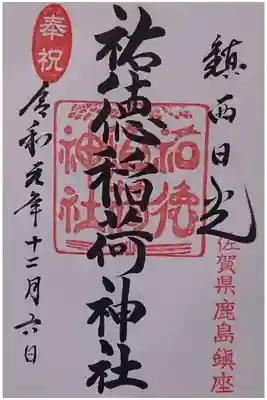 鎮西日光
佐賀県鹿島鎮座
祐徳稲荷神社
祐徳稲荷神社
奉祝
令和元年十二月六日